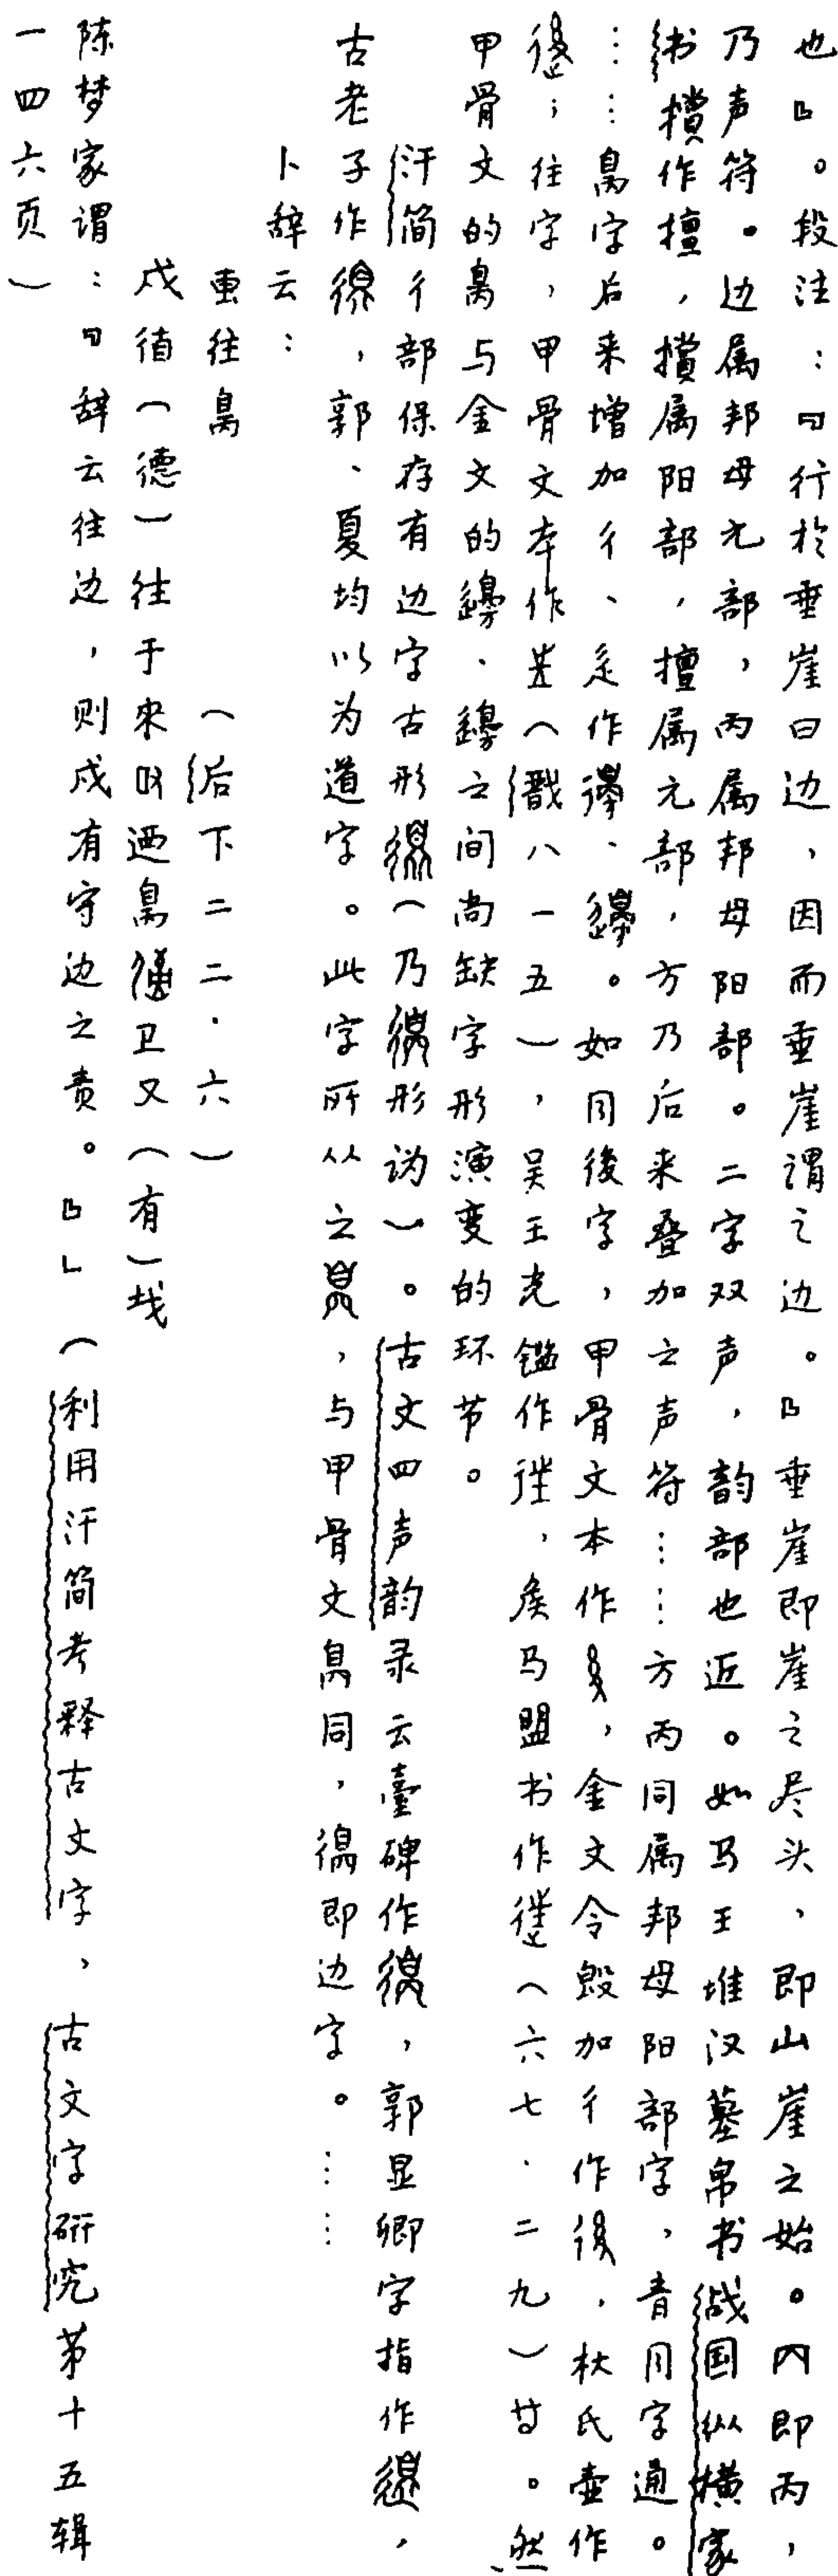 也』。段注：『行於垂崖曰边，因而垂崖谓之边。』垂崖即崖之尽头，即山崖之始。内即丙，
乃声符。边属邦母元部，丙属邦母阳部。二字双声，韵部也近。如马王堆汉墓帛书战国纵横家
书㩴作擅，㩴属阳部，擅属元部，方乃后来叠加之声符……方丙同属邦母阳部字，音同字通。
……臱字后来增加彳、辵作𢕟、邊。如同後字，甲骨文本作，金文令毁加彳作後，杕氏壶作
；往字，甲骨文本作㞷（戬八一五），吴王光鑑作徃，侯马盟书作（六七·二九）等。然
甲骨文的臱与金文的邊、邊之间尚缺字形演变的环节。
汗简彳部保存有边字古形（乃形讹）。古文四声韵录云臺碑作，郭显卿字指作，
古老子作，郭、夏均以为道字。此字所从之，与甲骨文臱同，即边字。……
卜辞云：
叀往臱
（后下二二·六）
戍徝（德）往于来取迺臱卫又（有）𢦏
陈梦家谓：『辞云往边，则戍有守边之责。』」（利用汗简考释古文字，古文字研究第十五辑
一四六页）